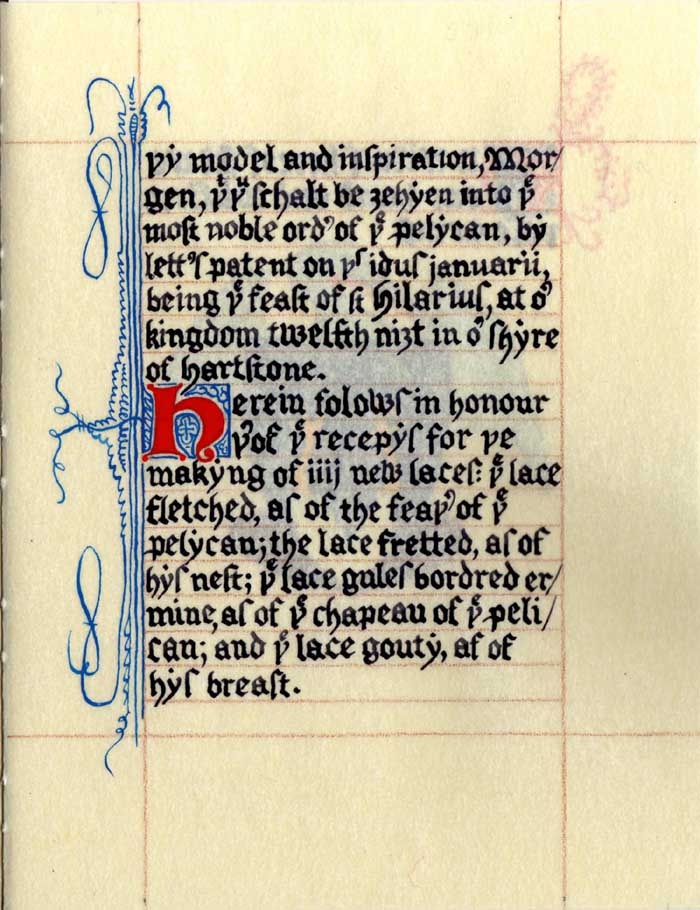 yẏ model and inſpiration, Mor/
gen, ẏͭ yͧ ſchalt be ʒehẏen into yͤ
moſt noble ord' of yͤ pelẏcan, bẏ
lett's patent on yͤ idus januarii,
being yͤ feaſt of ſt hilariuſ, at o'
kingdom twelfth niʒt in o' ſhẏre
of hartſtone.
herein folowſ in honour
y'of yͤ recepẏſ for ye
makẏng of iiij new laceſ: yͤ lace
fletched, aſ of the feay' of yͤ
pelẏcan; the lace fretted, aſ of
hẏſ neſt; yͤ lace guleſ bordred er/
mine, aſ of yͤ chapeau of yͤ peli/
can; and yͤ lace goutẏ, aſ of
hẏſ breaſt.